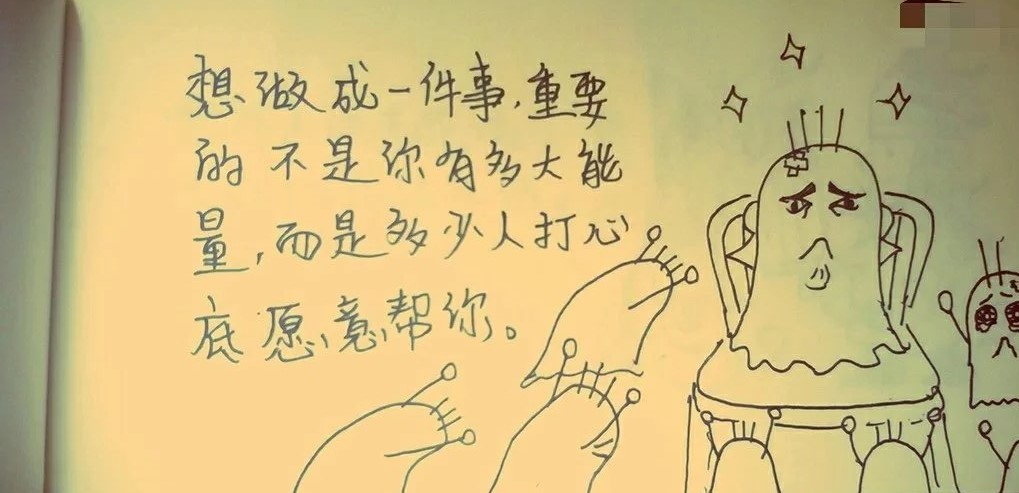 想做成一件事,重要
的不是你有多大能
量,而是多少人打心
底愿意帮你。